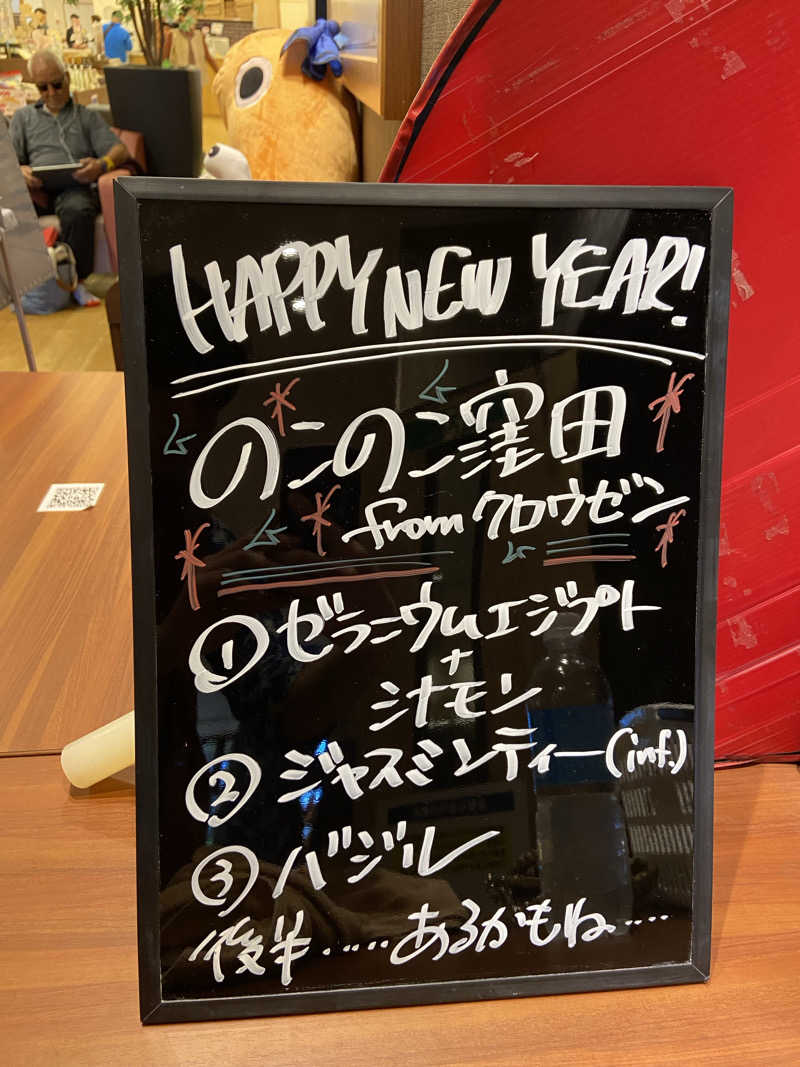 HAPPY NEW YEAR!
のこのこ窪田
from クロウゼン
① ゼラニウムエジプト
+
シナモン
② ジャスミンティー(inf.)
③ バジル
後半・・・・・あるかもね・・・・